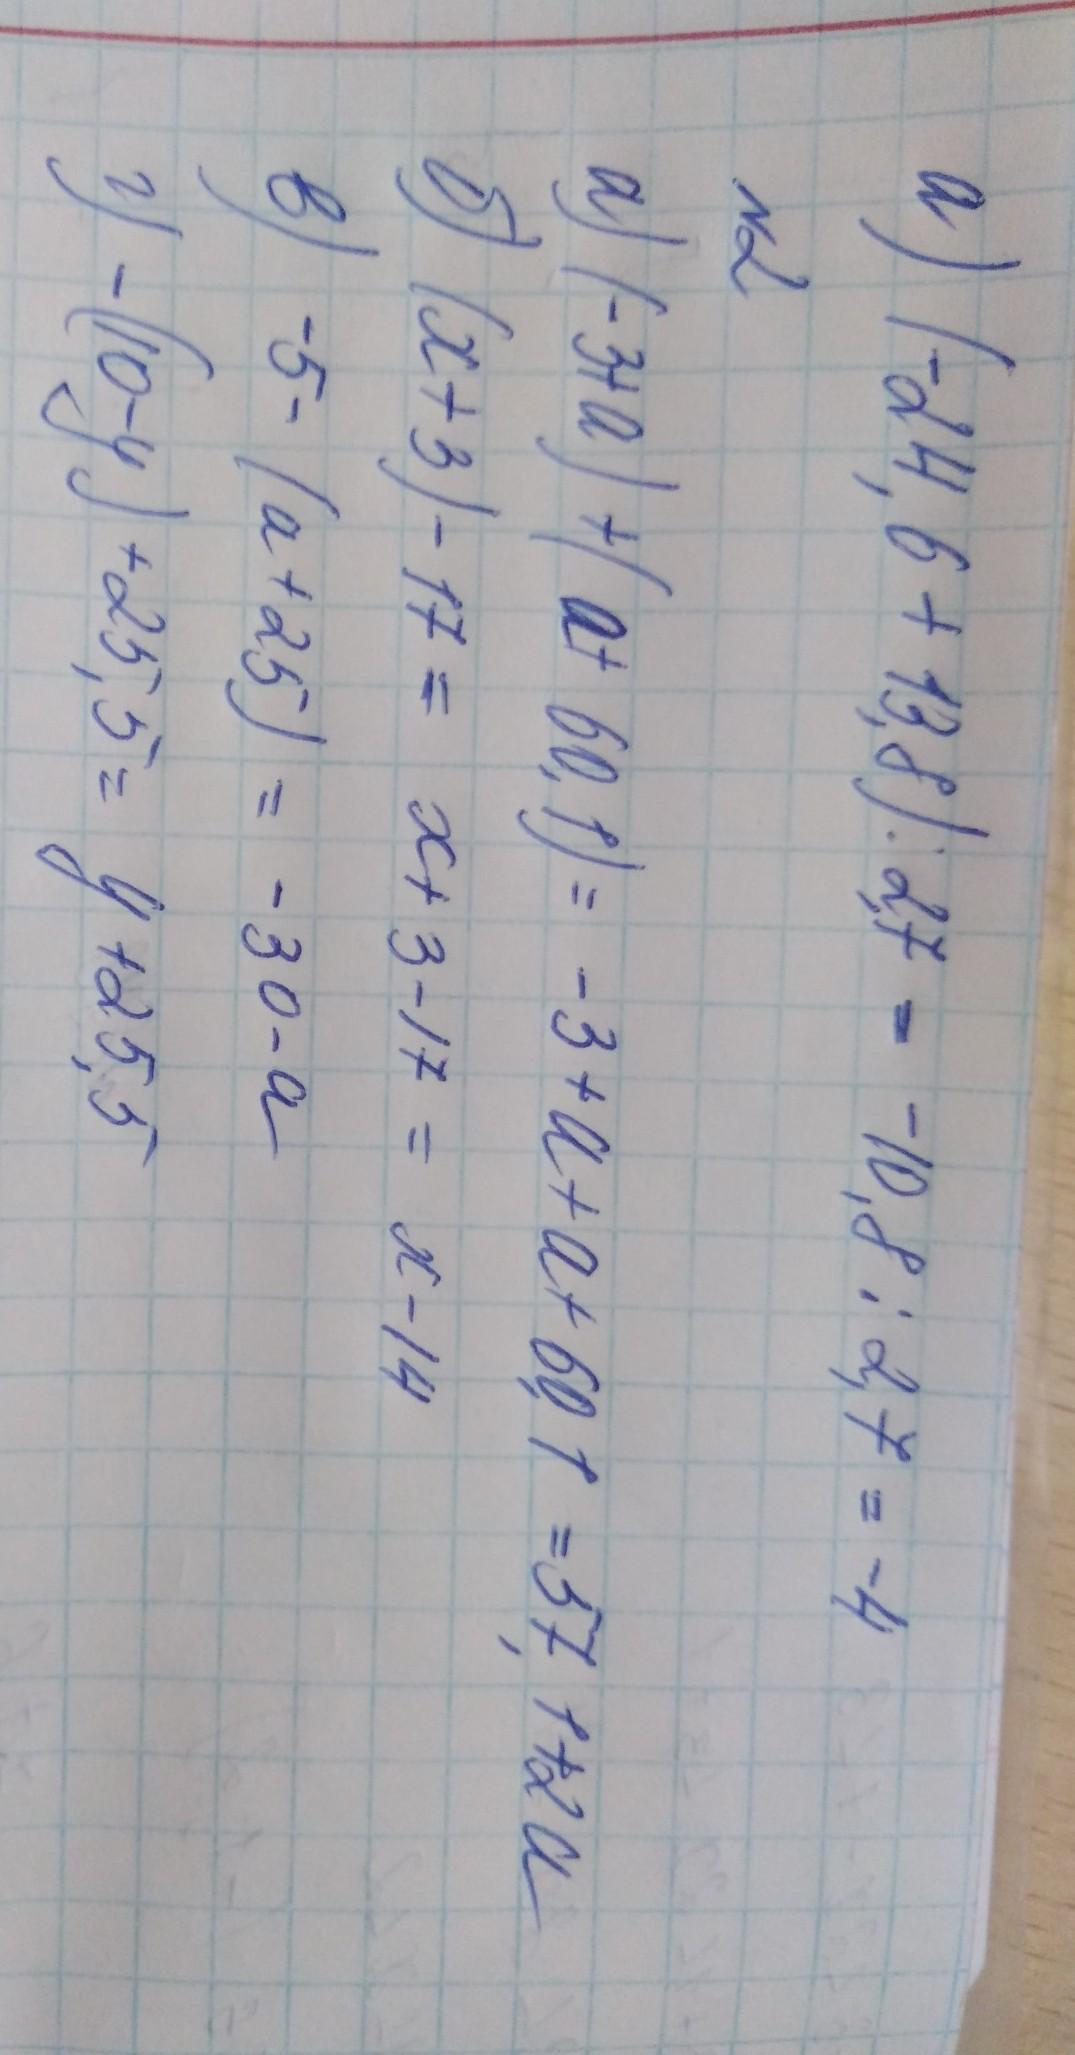 а) (-24,6 + 13,8) : 2,7 = -10,8 : 2,7 = -4
№2
а) (-3+a) + (a + 60,1) = -3+a+a+60,1 = 57,1+2a
б) (x+3) - 17 = x+3-17 = x-14
в) -5-(a+25) = -30-a
г) -(10-y)+25,5 = y+25,5